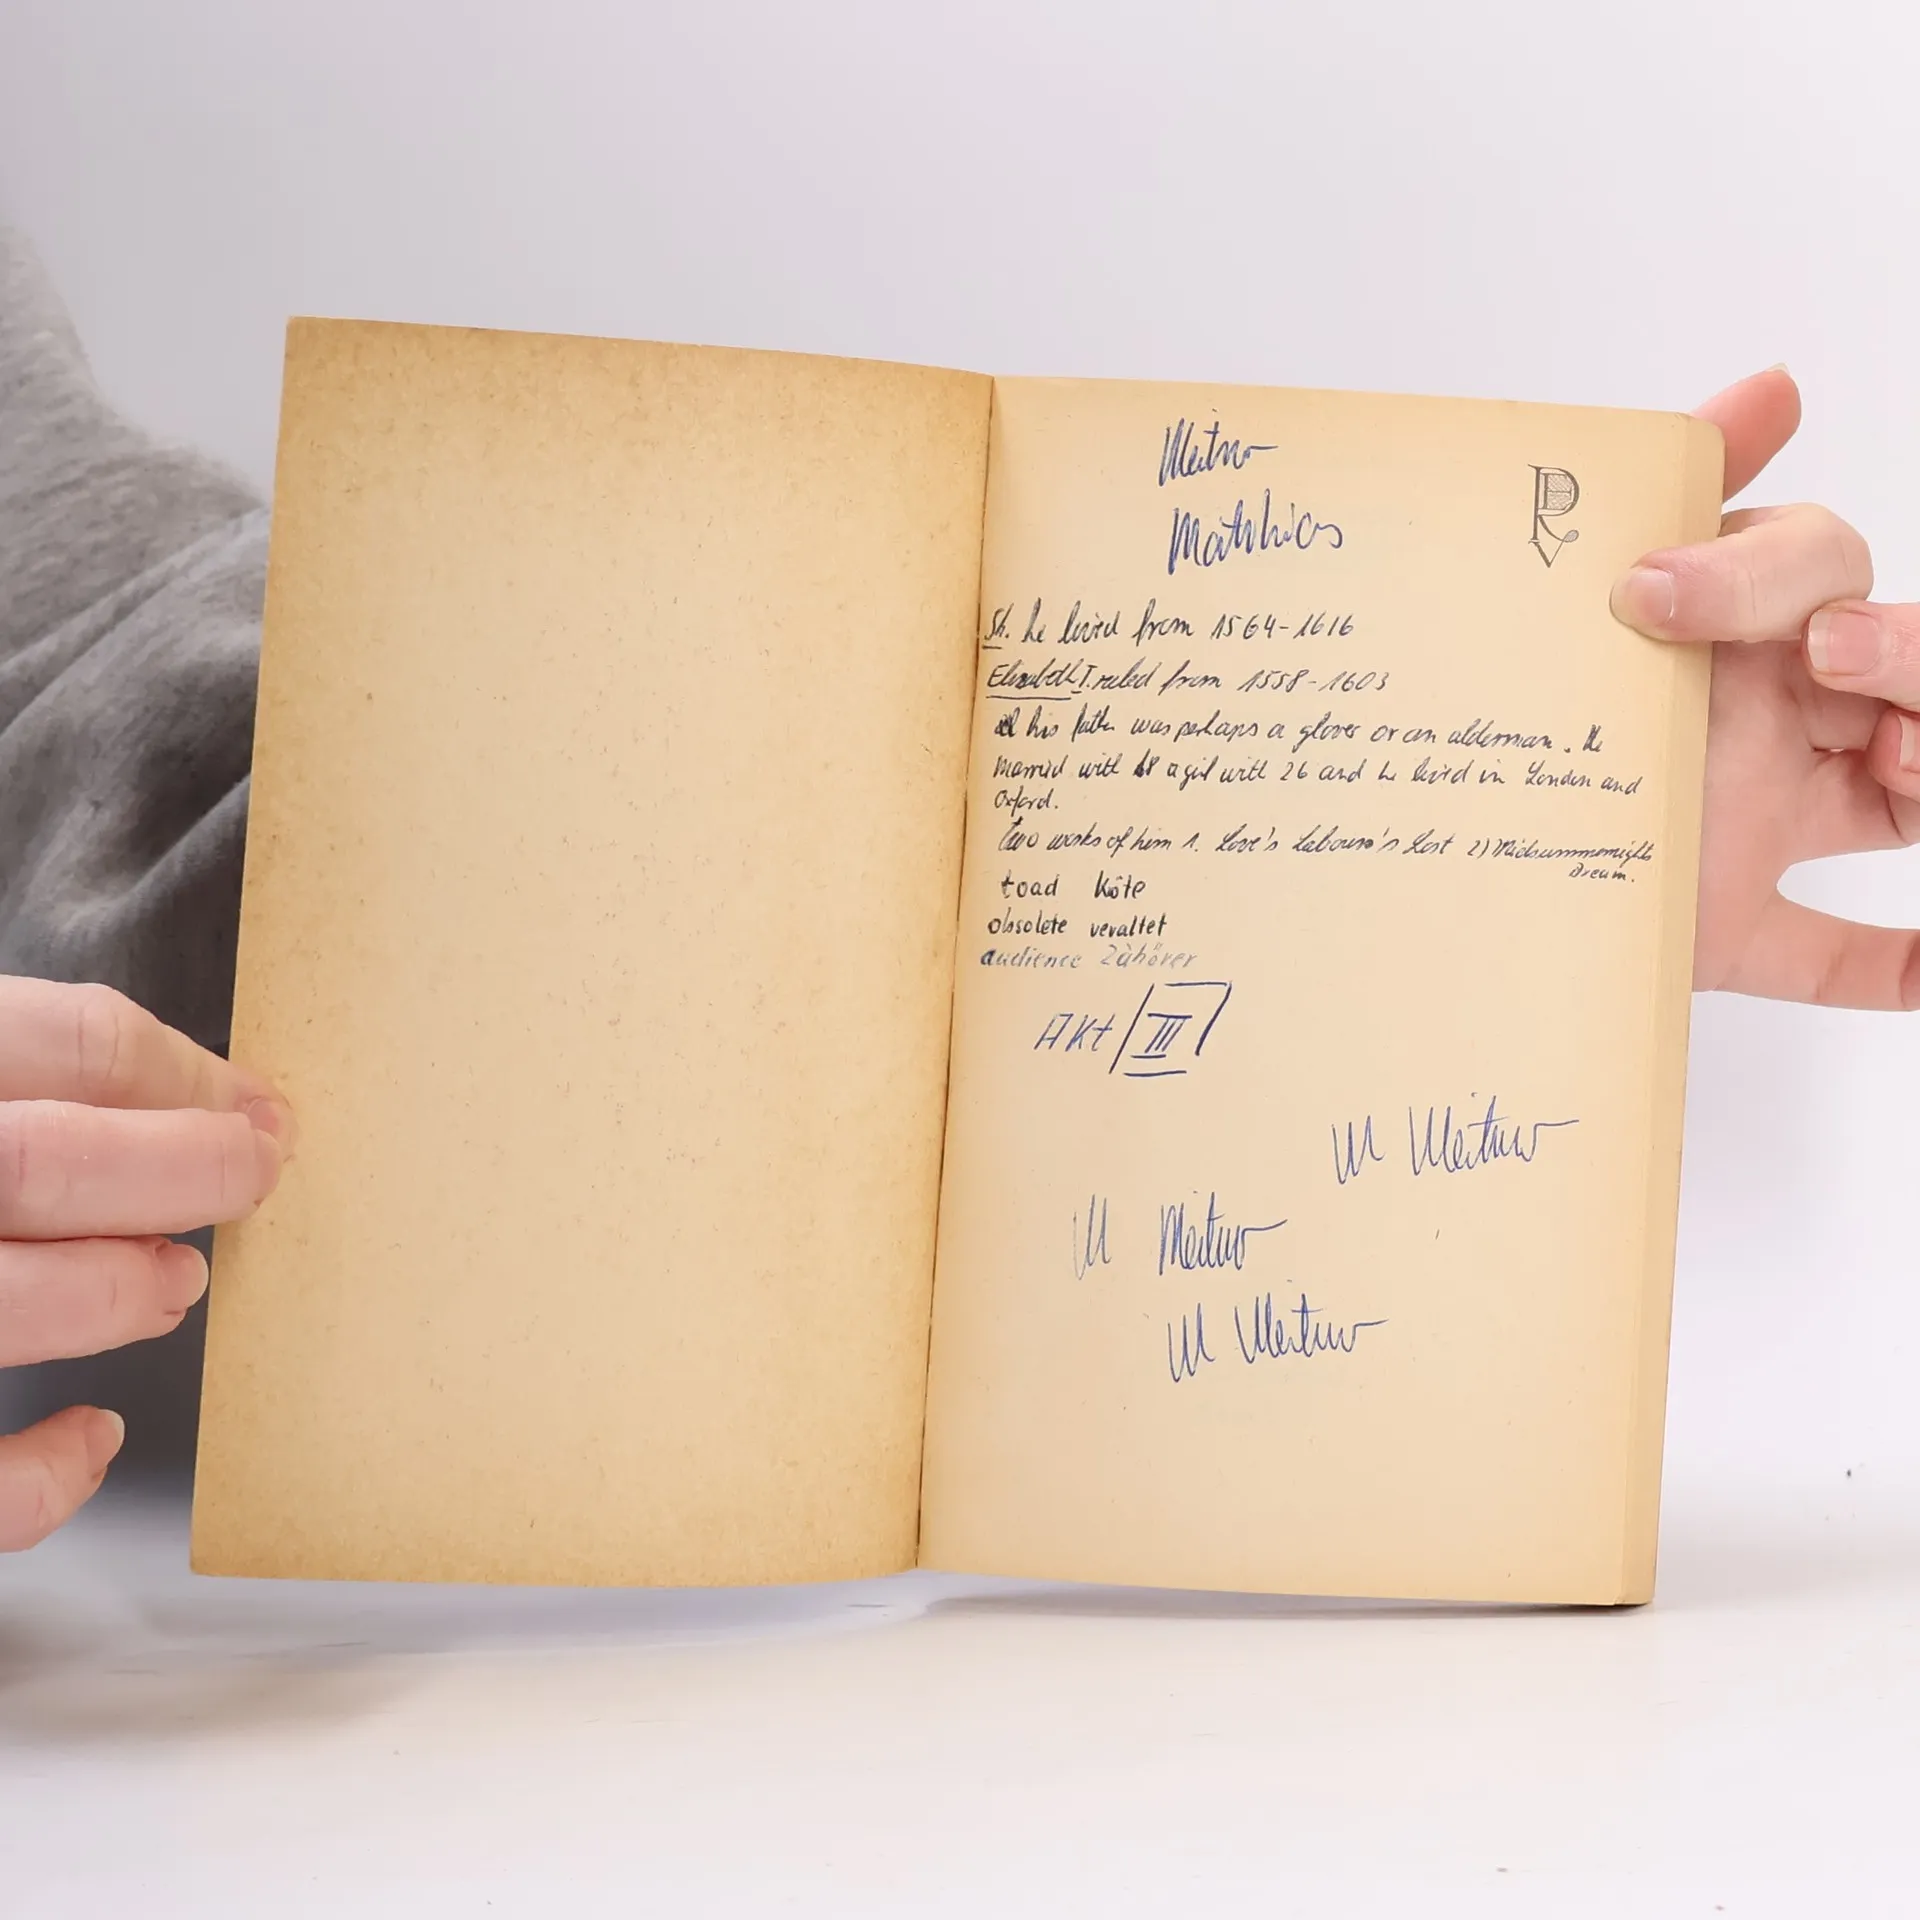 Matthias
PRV
Sh. he lived from 1564-1616
Elisabeth I. ruled from 1558-1603
his father was perhaps a glover or an alderman. He
married with 18 a girl with 26 and he lived in London and
Oxford.
Two works of him 1. Love's Labours's Lost 2) Midsummernights
Dream.
toad Köte
obsolete veraltet
audience Zühörer
Akt III
M
M
M